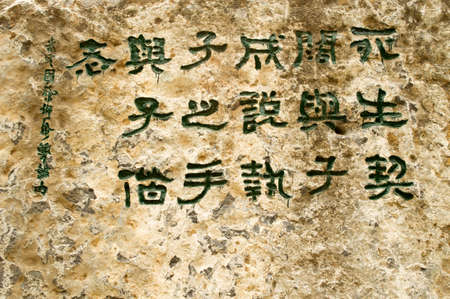 死生契
闊與子
成說執
子之手
與子偕
老